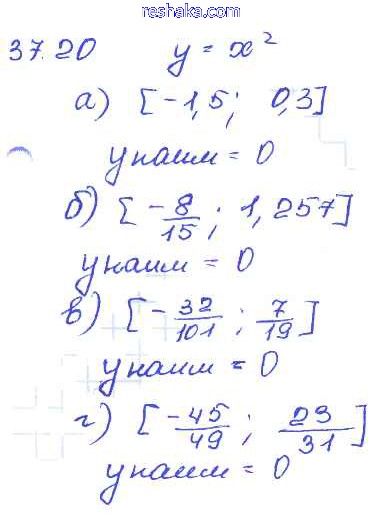 reshaka.com
37.20 y = x²
а) [-1,5; 0,3]
y наим = 0
б) [-8/15; 1,257]
y наим = 0
в) [-32/101; 7/19]
y наим = 0
г) [-45/49; 23/31]
y наим = 0